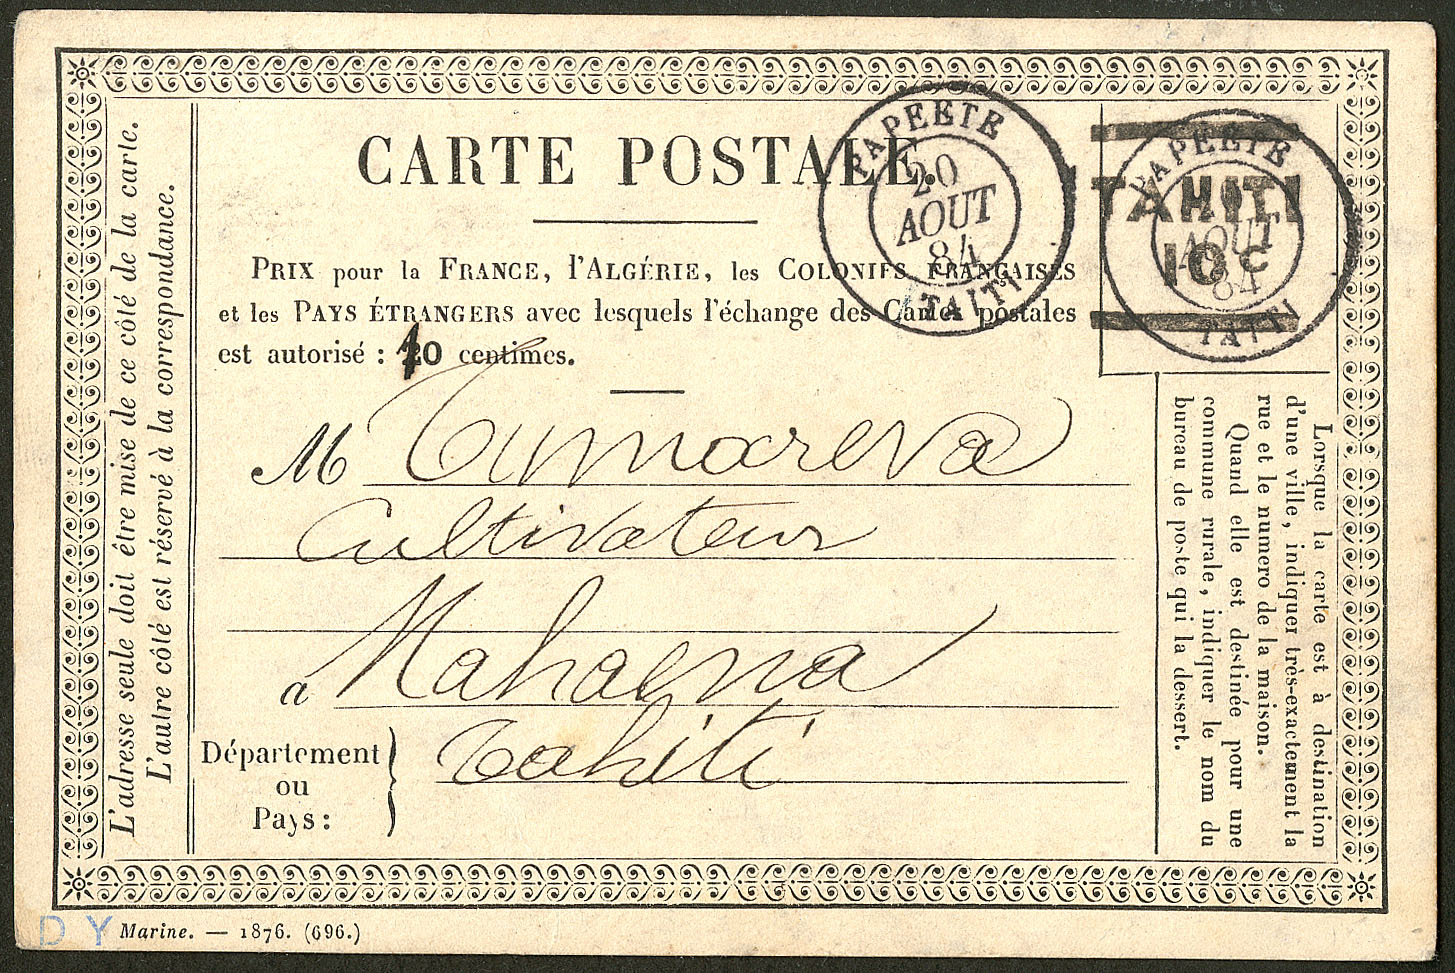 L'adresse seule doit être mise de ce côté de la carte.
L'autre côté est réservé à la correspondance.
CARTE POSTALE.
PRIX pour la FRANCE, l'ALGÉRIE, les COLONIES FRANÇAISES
et les PAYS ÉTRANGERS avec lesquels l'échange des Cartes postales
est autorisé : 10 centimes.
PAPEETE
20
AOUT
84
TAITI
PAPEETE
AOUT
84
TAITI
TAHITI
10 c
M Tumoreva
Cultivateur
a Mahaena
Département
ou
Pays :
Tahiti
Lorsque la carte est à destination
d'une ville, indiquer très-exactement la
rue et le numero de la maison.
Quand elle est destinée pour une
commune rurale, indiquer le nom du
bureau de poste qui la dessert.
D Y
Marine. — 1876. (696.)